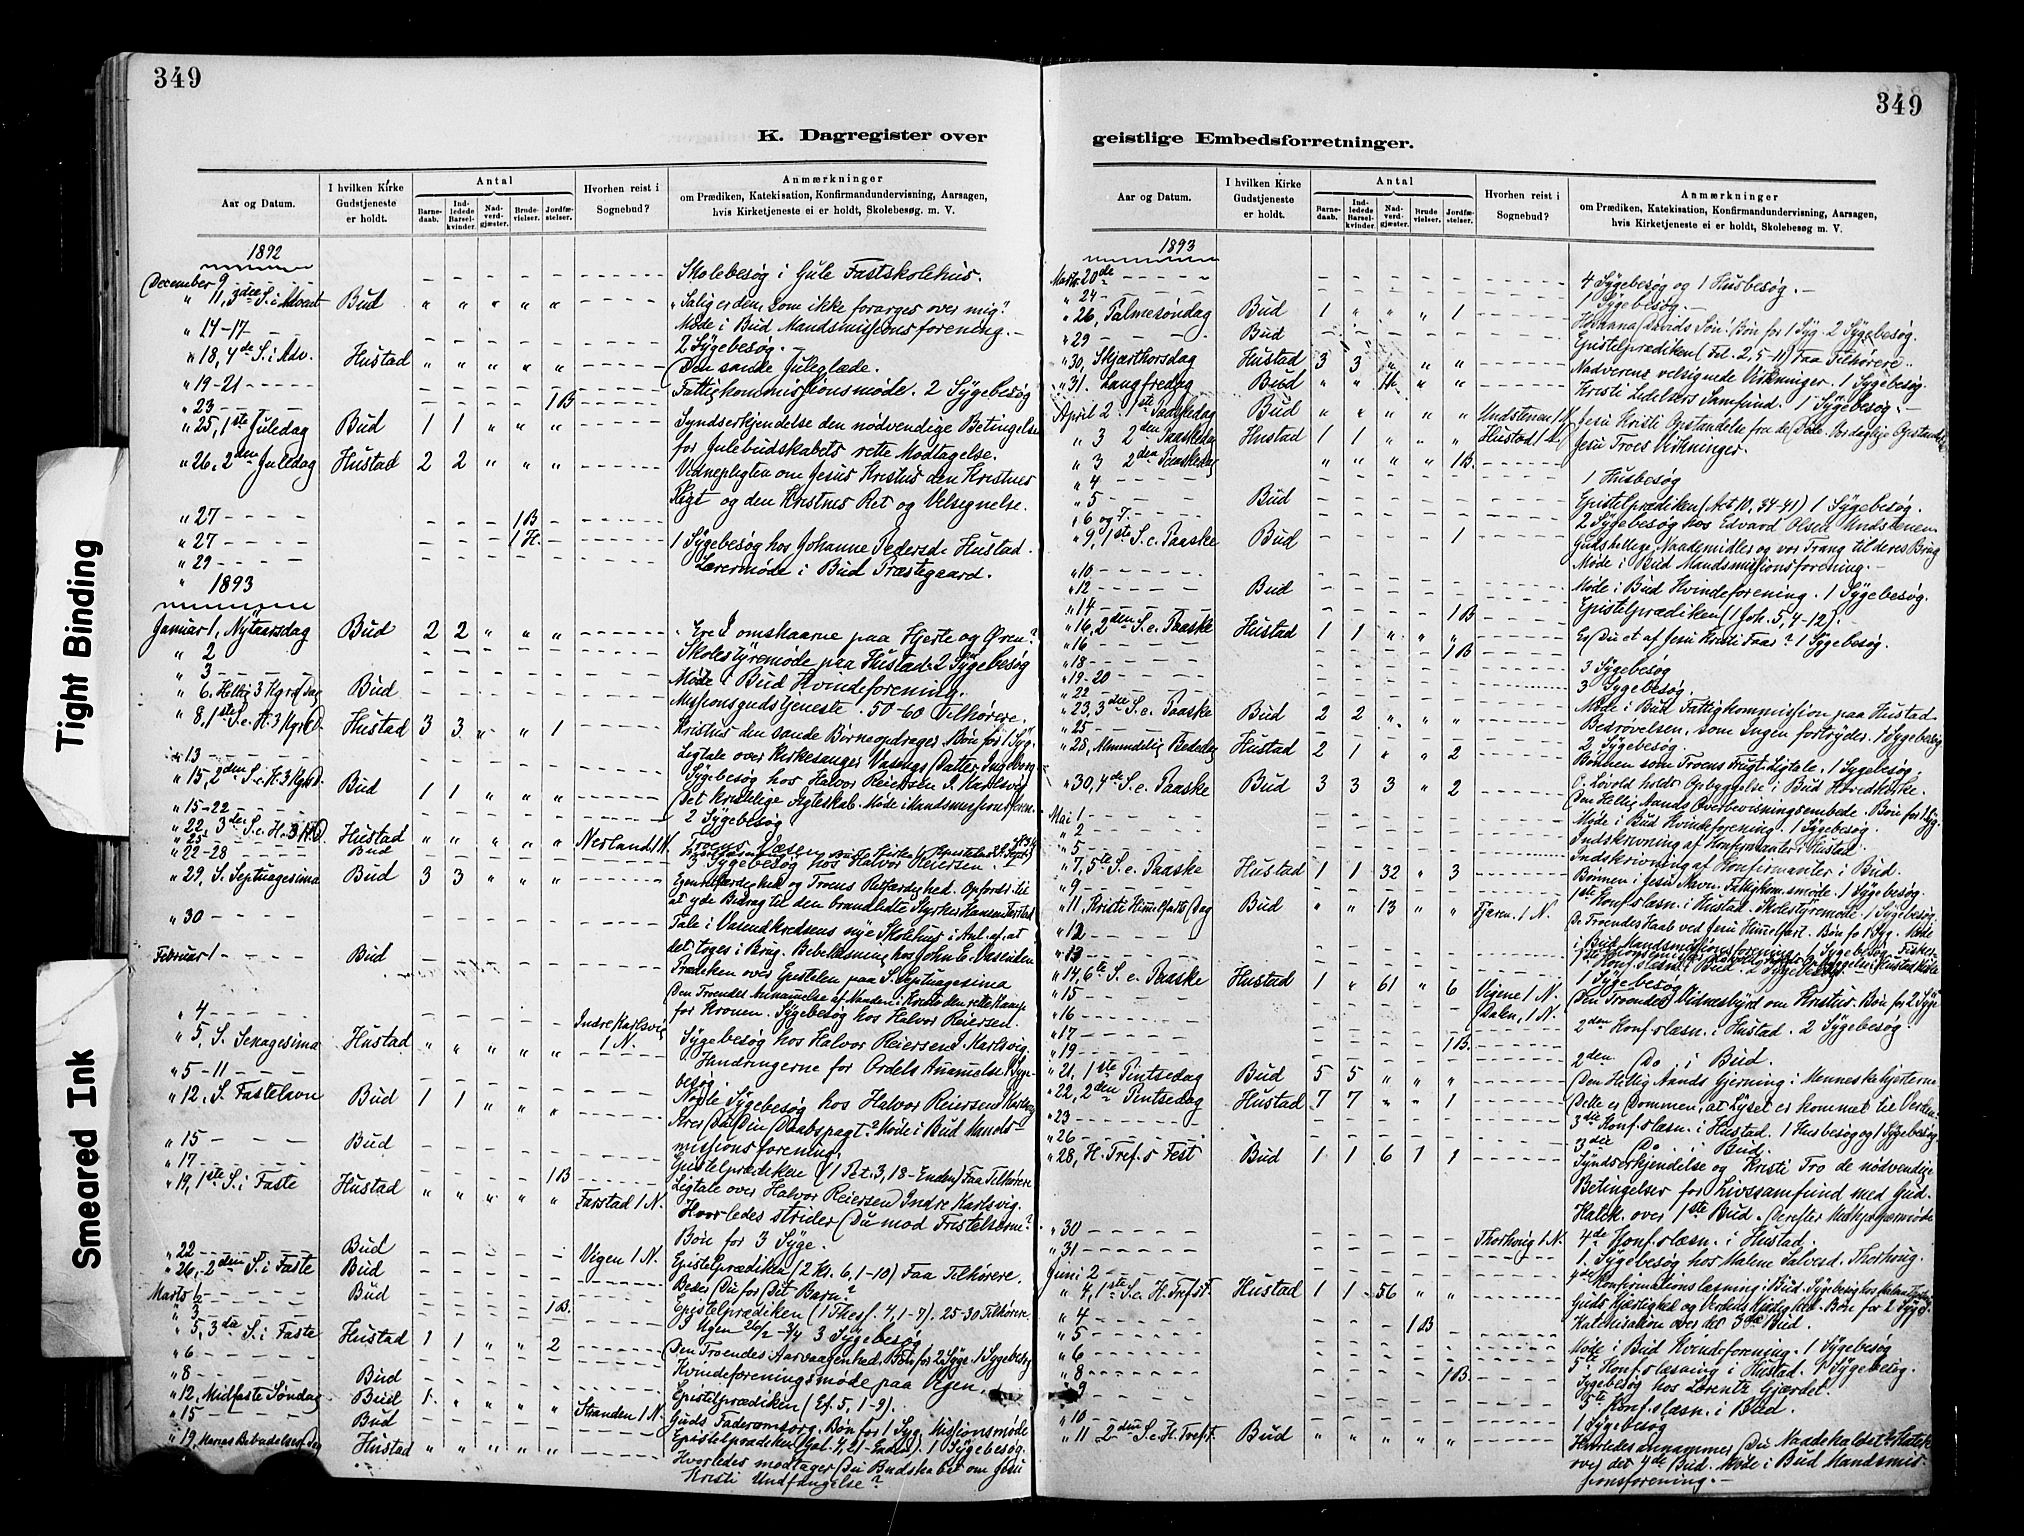 349
K. Dagregister over
Aar og Datum.
I hvilken Kirke Gudstjeneste er holdt.
Antal
Barnedaab.
Indledede Barselkvinder.
Nadverdgjæster.
Brudevielser.
Jordfæstelser.
Hvorhen reist i Sognebud?
Anmærkninger
om Prædiken, Katekisation, Konfirmandundervisning, Aarsagen,
hvis Kirketjeneste ei er holdt, Skolebesøg. m. V.
1892
December 9 Skolebesøg i Gule Fastskolehus.
" 11, 3die S. i Advent Bud " " " " " "Salig er den, som ikke forarges over mig".
Møde i Bud Mandsmissionsforening.
" 14-17 2 Sygebesøg.
" 18, 4de S. i Adv. Hustad " " " " " Den sande Juleglæde.
" 19-21 Fattigkommissionsmøde. 2 Sygebesøg
" 23 1 B
" 25, 1ste Juledag Bud 1 1 " " " Syndserkjendelse den nødvendige Betingelse
for Julebudskabets rette Modtagelse.
" 26, 2den Juledag Hustad 2 2 " " " Vidnepligten om Jesus Kristus den Kristnes
Pligt og den Kristnes Ret og Velsignelse.
" 27 1 B
" 27 1 H. 1 Sygebesøg hos Johanne Pedersd. Hustad.
" 29 Lærermøde i Bud Præstegaard.
" 1893
Januar 1, Nytaarsdag Bud 2 2 " " " Ere I omskaarne paa Hjerte og Øren?
" 2 Skolestyremøde paa Hustad. 2 Sygebesøg
" 3 Møde i Bud Kvindeforening.
" 6. Hellig 3 Kg. Dag Bud Missionsgudstjeneste. 50-60 Tilhørere.
" 8, 1ste S. e. H. 3 Kg. D. Hustad 3 3 " " 1 Kristus den sande Børneopdrager. Bøn for 1 Syg.
" 13 Ligtale over Kirkesanger Vasengs Datter Ingeborg
" 15, 2den S. e. H. 3 Kg. D. Bud 1 1 " " " Sygebesøg hos Halvor Reiersen I. Karlsvig
Det kristelige Ægteskab. Møde i Mandsmissionsforen.
" 15-22 2 Sygebesøg
" 22, 3die S. e. H. 3 K. D. Hustad " " " " " Nerland 1 N. Troens Væsen
" 25 Bud
" 22-28 3 Sygebesøg hos Halvor Reiersen.
" 29, S. Septuagesima Bud 3 3 " " " Egenretfærdighed og Troens Retfærdighed. Opfordr. til
at yde Bidrag til den brandlidte Styrker Hansen Farstad
" 30 Tale i Vasendkredsens nye Skolehus i Anl. af, at
det toges i Brug. Bibellæsning hos John E. Vasseiden
Februar 1 Bud Præken over Epistelen paa S. Septuagesima
" 4 for Kronen. Sygebesøg hos Halvor Reiersen.
" 5, S. Sexagesima Hustad " " " " " Indre Karlsvig 1 N. Sygebesøg hos Halvor Reiersen I. Karlsvig
" 5-11 Hindringerne for Ordets Anammelse. Sygebesøg.
" 12, S. Fastelavn Bud 1 1 " " " Nogle Sygebesøg hos Halvor Reiersen I Karlsvig
Æres Du Din Daabspagt? Møde i Bud Mandsmissionsforening.
" 15 Bud
" 17 1 B Epistelprædiken (1 Pet. 3, 18-Enden) Faa Tilhørere
" 19, 1ste S. i Faste Hustad " " " " " Farstad 1 N. Ligtale over Halvor Reiersen Indre Karlsvig.
Hvorledes strider Du mod Fristelserne?
Bøn for 3 Syge.
" 22 Bud Epistelprædiken (2 Kr. 6, 1-10) Faa Tilhørere.
" 26, 2den S. i Faste Bud Vigen 1 N. Beder Du for Dit Barn?
Marts 1 Bud Epistelprædiken (1 Thess. 4, 1-7). 25-30 Tilhørere.
" 3 1 B. I Ugen 26/2 - 3/4 3 Sygebesøg
" 5, 3die S. i Faste Hustad 1 1 " " 2 Den Troendes Aarvaagenhed. Bøn for 2 Syge. 1 Sygebesøg
" 6 Kvindeforeningsmøde paa Vigen.
" 8 Bud Epistelprædiken (Ef. 5, 1-9).
" 12, Midfaste Søndag Bud 1 " " " " Stranden 1 N. Guds Faderomsorg. Bøn for 1 Syg. Missionsmøde
" 15 Bud Epistelprædiken (Gal. 4, 21-Enden). 1 Sygebesøg.
" 19, Marias Bebudelses Dag Hustad " " " " " Hvorledes modtager Du Budskabet om Jesu
Kristi Undfangelse?
349
geistlige Embedsforretninger.
Aar og Datum.
I hvilken Kirke Gudstjeneste er holdt.
Antal
Barnedaab.
Indledede Barselkvinder.
Nadverdgjæster.
Brudevielser.
Jordfæstelser.
Hvorhen reist i Sognebud?
Anmærkninger
om Prædiken, Katekisation, Konfirmandundervisning, Aarsagen,
hvis Kirketjeneste ei er holdt, Skolebesøg m. V.
1893
Marts 20de 4 Sygebesøg og 1 Husbesøg.
" 24 1 Sygebesøg.
" 26, Palmesøndag Bud 1 " " " 1 Hosanna Davids Søn! Bøn for 1 Syg. 2 Sygebesøg.
" 29 Bud Epistelprædiken (Fil. 2, 5-11) Faa Tilhørere.
" 30, Skjærthorsdag Hustad 3 3 " " " Nadverens velsignede Virkninger. 1 Sygebesøg.
" 31. Langfredag Bud " " " " Kristi Lidelsers Samfund. 1 Sygebesøg.
April 2 1ste Paaskedag Bud " " " " " Jesu Kristi Opstandelse fra de Døde.
" 3 2den Paaskedag Hustad 1 1 " " " Hustad Jesu Troes Virkninger.
" 3 2den Paaskedag " " " " 1 B.
" 4 1 Husbesøg
" 5 Bud Epistelprædiken (Act 10, 34-41) 1 Sygebesøg.
" 6 og 7 2 Sygebesøg hos Edvard Olsen Undstenen
" 9, 1ste S. e. Paaske Bud 1 Guds hellige Naademidler og vor Trang til deres Brug
" 10 Møde i Bud Mandsmissionsforening.
" 12 Bud Møde i Bud Kvindeforening. 1 Sygebesøg.
" 14 1 B Epistelprædiken (1 Joh. 5, 4-12).
" 16, 2den S. e. Paaske Hustad 1 1 " " " Er Du et af Jesu Kristi Faar? 1 Sygebesøg.
" 16 1 B
" 18 3 Sygebesøg
" 19-20 3 Sygebesøg.
" 22 Møde i Bud Fattigkommission paa Hustad
" 23, 3die S. e. Paaske Bud 2 2 " " " Bedrøvelsen, som Ingen fortryder. 1 Sygebesøg
" 25 2 Sygebesøg.
" 28, Almindelig Bededag Hustad 2 1 " " 2 Bønnen som Troens Frugt. Ligtale. 1 Sygebesøg.
O. Løvold holdt Opbyggelse i Bud Hovedkirke.
" 30, 4de S. e. Paaske Bud 3 3 3 " 2 Den Hellig Aands Overbevisningsembede. Bøn for 1 Syg.
Mai 1 Møde i Bud Kvindeforening. 1 Sygebesøg.
" 2 Indskrivning af Konfirmanter i Hustad.
" 5 Indskrivning af Konfirmanter i Bud.
" 7, 5te S. e. Paaske Hustad 1 1 32 " 3 Bønnen i Jesu Navn. Fattigkom.smøde. 1 Sygebesøg.
" 9 1ste Konf.slæsn. i Hustad. Skolestyremøde. 1 Sygebesøg.
" 11, Kristi Himmelfarts Dag Bud " " 13 " " Tjæren, 1 N. De Troendes Haab ved Jesu Himmelfart. Bøn fo 1 Syg. Møde
i Bud Mandsmissionsforening. 1 Sygebesøg.
" 12
" 13 1ste Konf.slæsn. i Bud. 2 Sygebesøg
" 14, 6te S. e. Paaske Hustad 1 " 61 " 6 Vigene 1 N. 1 Sygebesøg
" 15 Dalen, 1 N. Den Troendes Vidnesbyrd om Kristus. Bøn for 2 Syge
" 16 2den Konf.slæsn. i Hustad. 2 Sygebesøg.
" 17
" 19 1 B. 2den Do i Bud.
" 21, 1ste Pintsedag Bud 5 5 " " " Den Hellig Aands Gjerning i Menneskehjerterne
" 22, 2den Pintsedag Hustad 7 7 " " 1 Dette er Dommen, at Lyset er kommet til Verden
" 23 3die Konf.slæsn. i Hustad. 1 Husbesøg og 1 Sygebesøg
" 26 3die Do. i Bud.
" 28, H. Tref.s Fest Bud 1 1 6 1 1 Syndserkjendelse og Kristi Tro de nødvendige
Betingelser for Livssamfund med Gud.
Katek. over 1ste Bud. Derefter Medhjælpermøde
" 30 4de Konf.slæsn. i Hustad.
" 31 Thorhvig 1 N. 1 Sygebesøg hos Malene Salvesd. Thorhvig.
Juni 2 4de Konfirmationslæsning i Bud.
" 4, 1ste S. e. H. Tref.sF. Hustad 1 1 56 " " Guds Kjærlighed og Verdens Kjærlighed. Bøn for 2 Syge.
" 4 1 B Katekisation over det 3die Bud.
" 5
" 6 Møde i Bud Kvindeforening. 1 Sygebesøg
" 8 1 B. 5te Konf.slæsning i Hustad. 1 Sygebesøg.
" 9 Sygebesøg hos Lorentz Gjærdet.
5te Konf.slæsn. i Bud.
" 10 1 Sygebesøg
" 11 2den S. e. H. Tref.F. Bud " " " " " Hvorledes annammer Du Naadekaldet? Katek.
over det 4de Bud. Møde i Bud Mandsmissionsforening.
Tight Binding
Smeared Ink